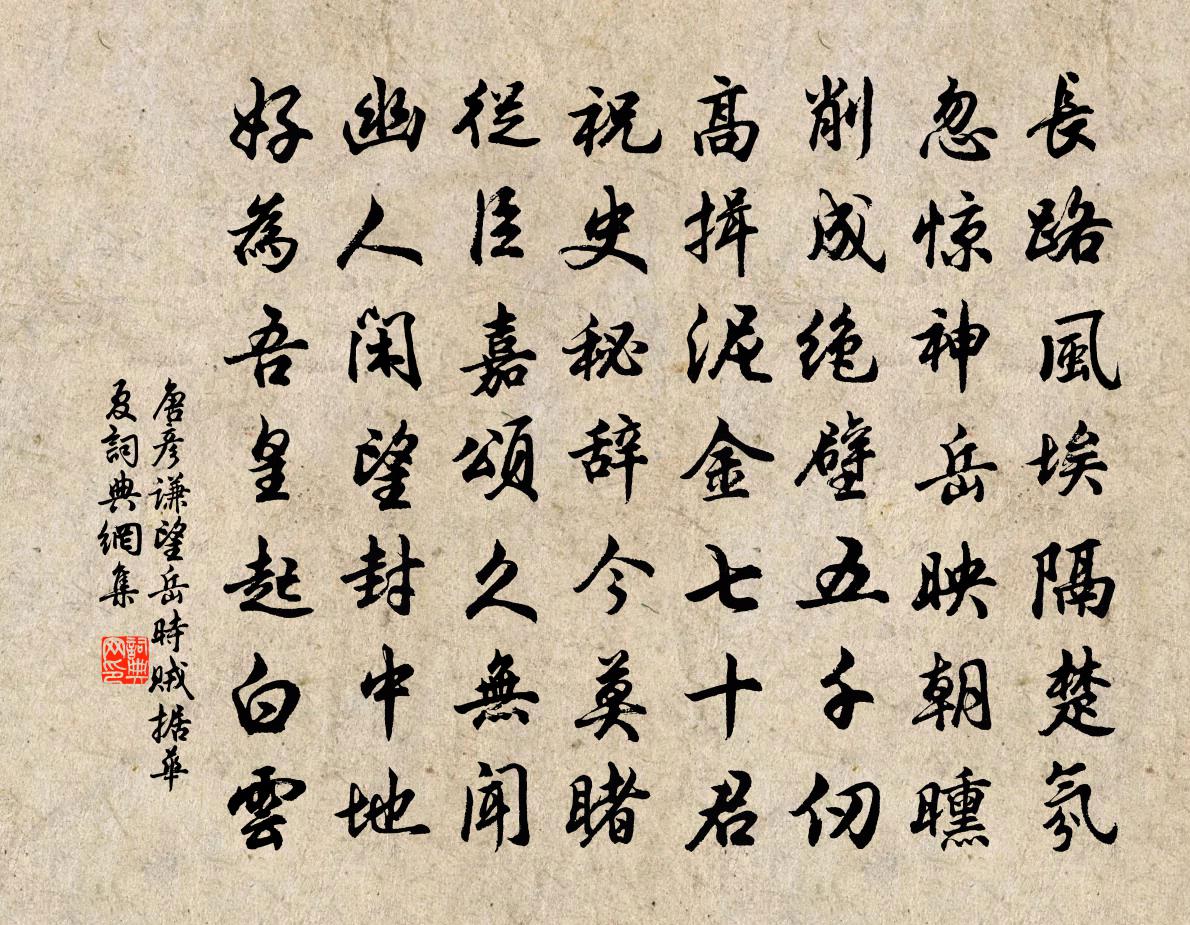 長路風埃隔楚氛
忽惊神岳映朝曛
削成绝壁五千仞
高揖泥金七十君
祝史秘辞今莫睹
從臣嘉頌久無聞
幽人闲望封中地
好為吾皇起白雲
唐彦谦望岳時贼据華
夏詞典網集
詞典
网印